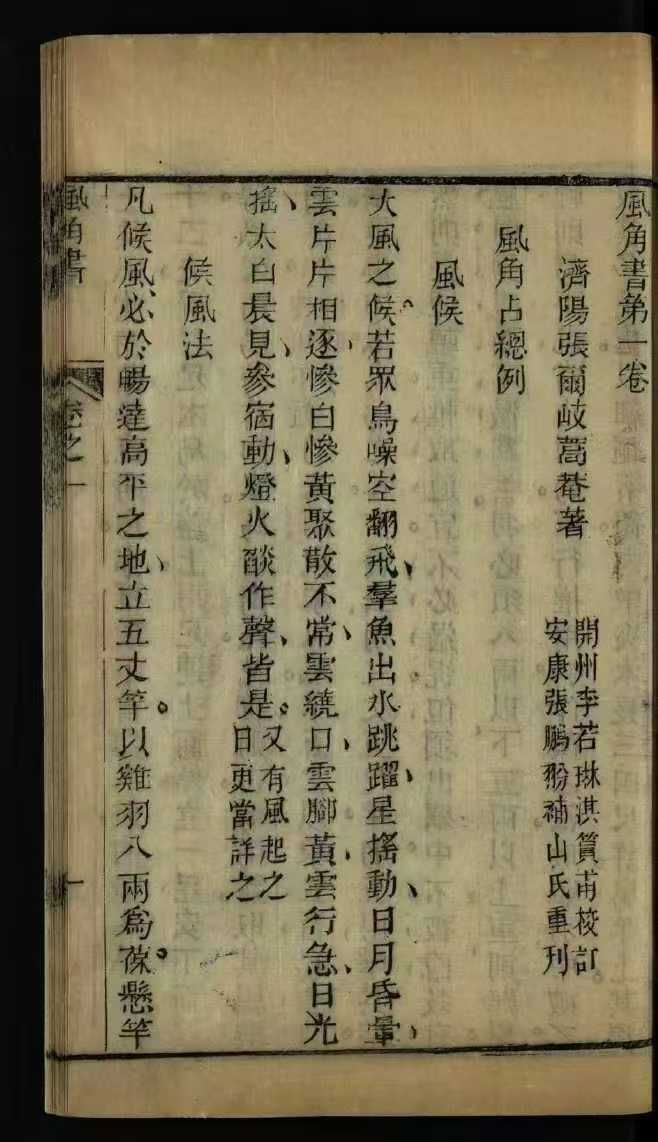 風角書第一卷
濟陽張爾岐蒿菴著
開州李若琳淇篔甫校訂
安康張鵬翂補山氏重刊
風角占總例
風候
大風之候。若眾鳥噪空翻飛、羣魚出水跳躍、星搖動、日月昏暈、
雲片片相逐、慘白慘黃聚散不常、雲繞口、雲腳黃、雲行急、日光
搖、太白晨見、參宿動、燈火燄作聲、皆是。又有風起之
日更當詳之
候風法
凡候風、必於暢達高平之地、立五丈竿。以雞羽八兩爲葆。懸竿
風角書
卷之一
一